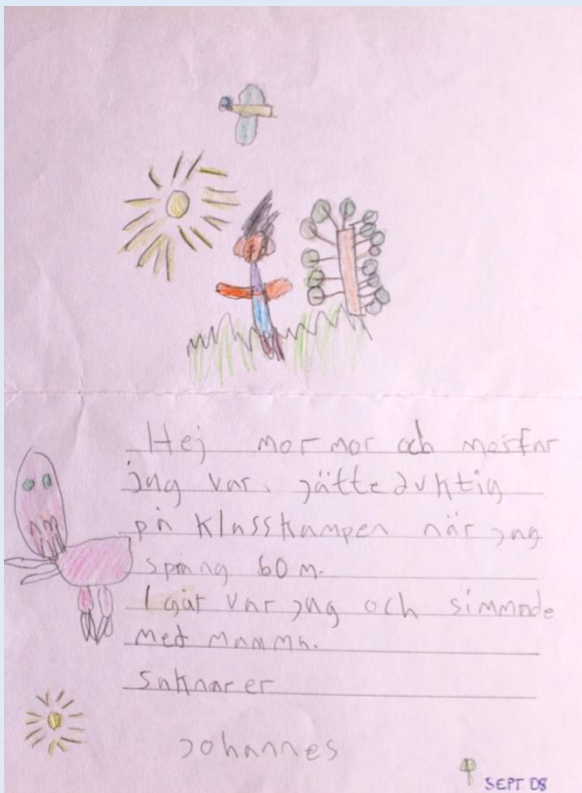 Hej mormor och morfar
jag var jätteduktig
på klasskampen när jag
sprang 60 m.
I går var jag och simmade
med mamma.
saknar er
Johannes
SEPT 08